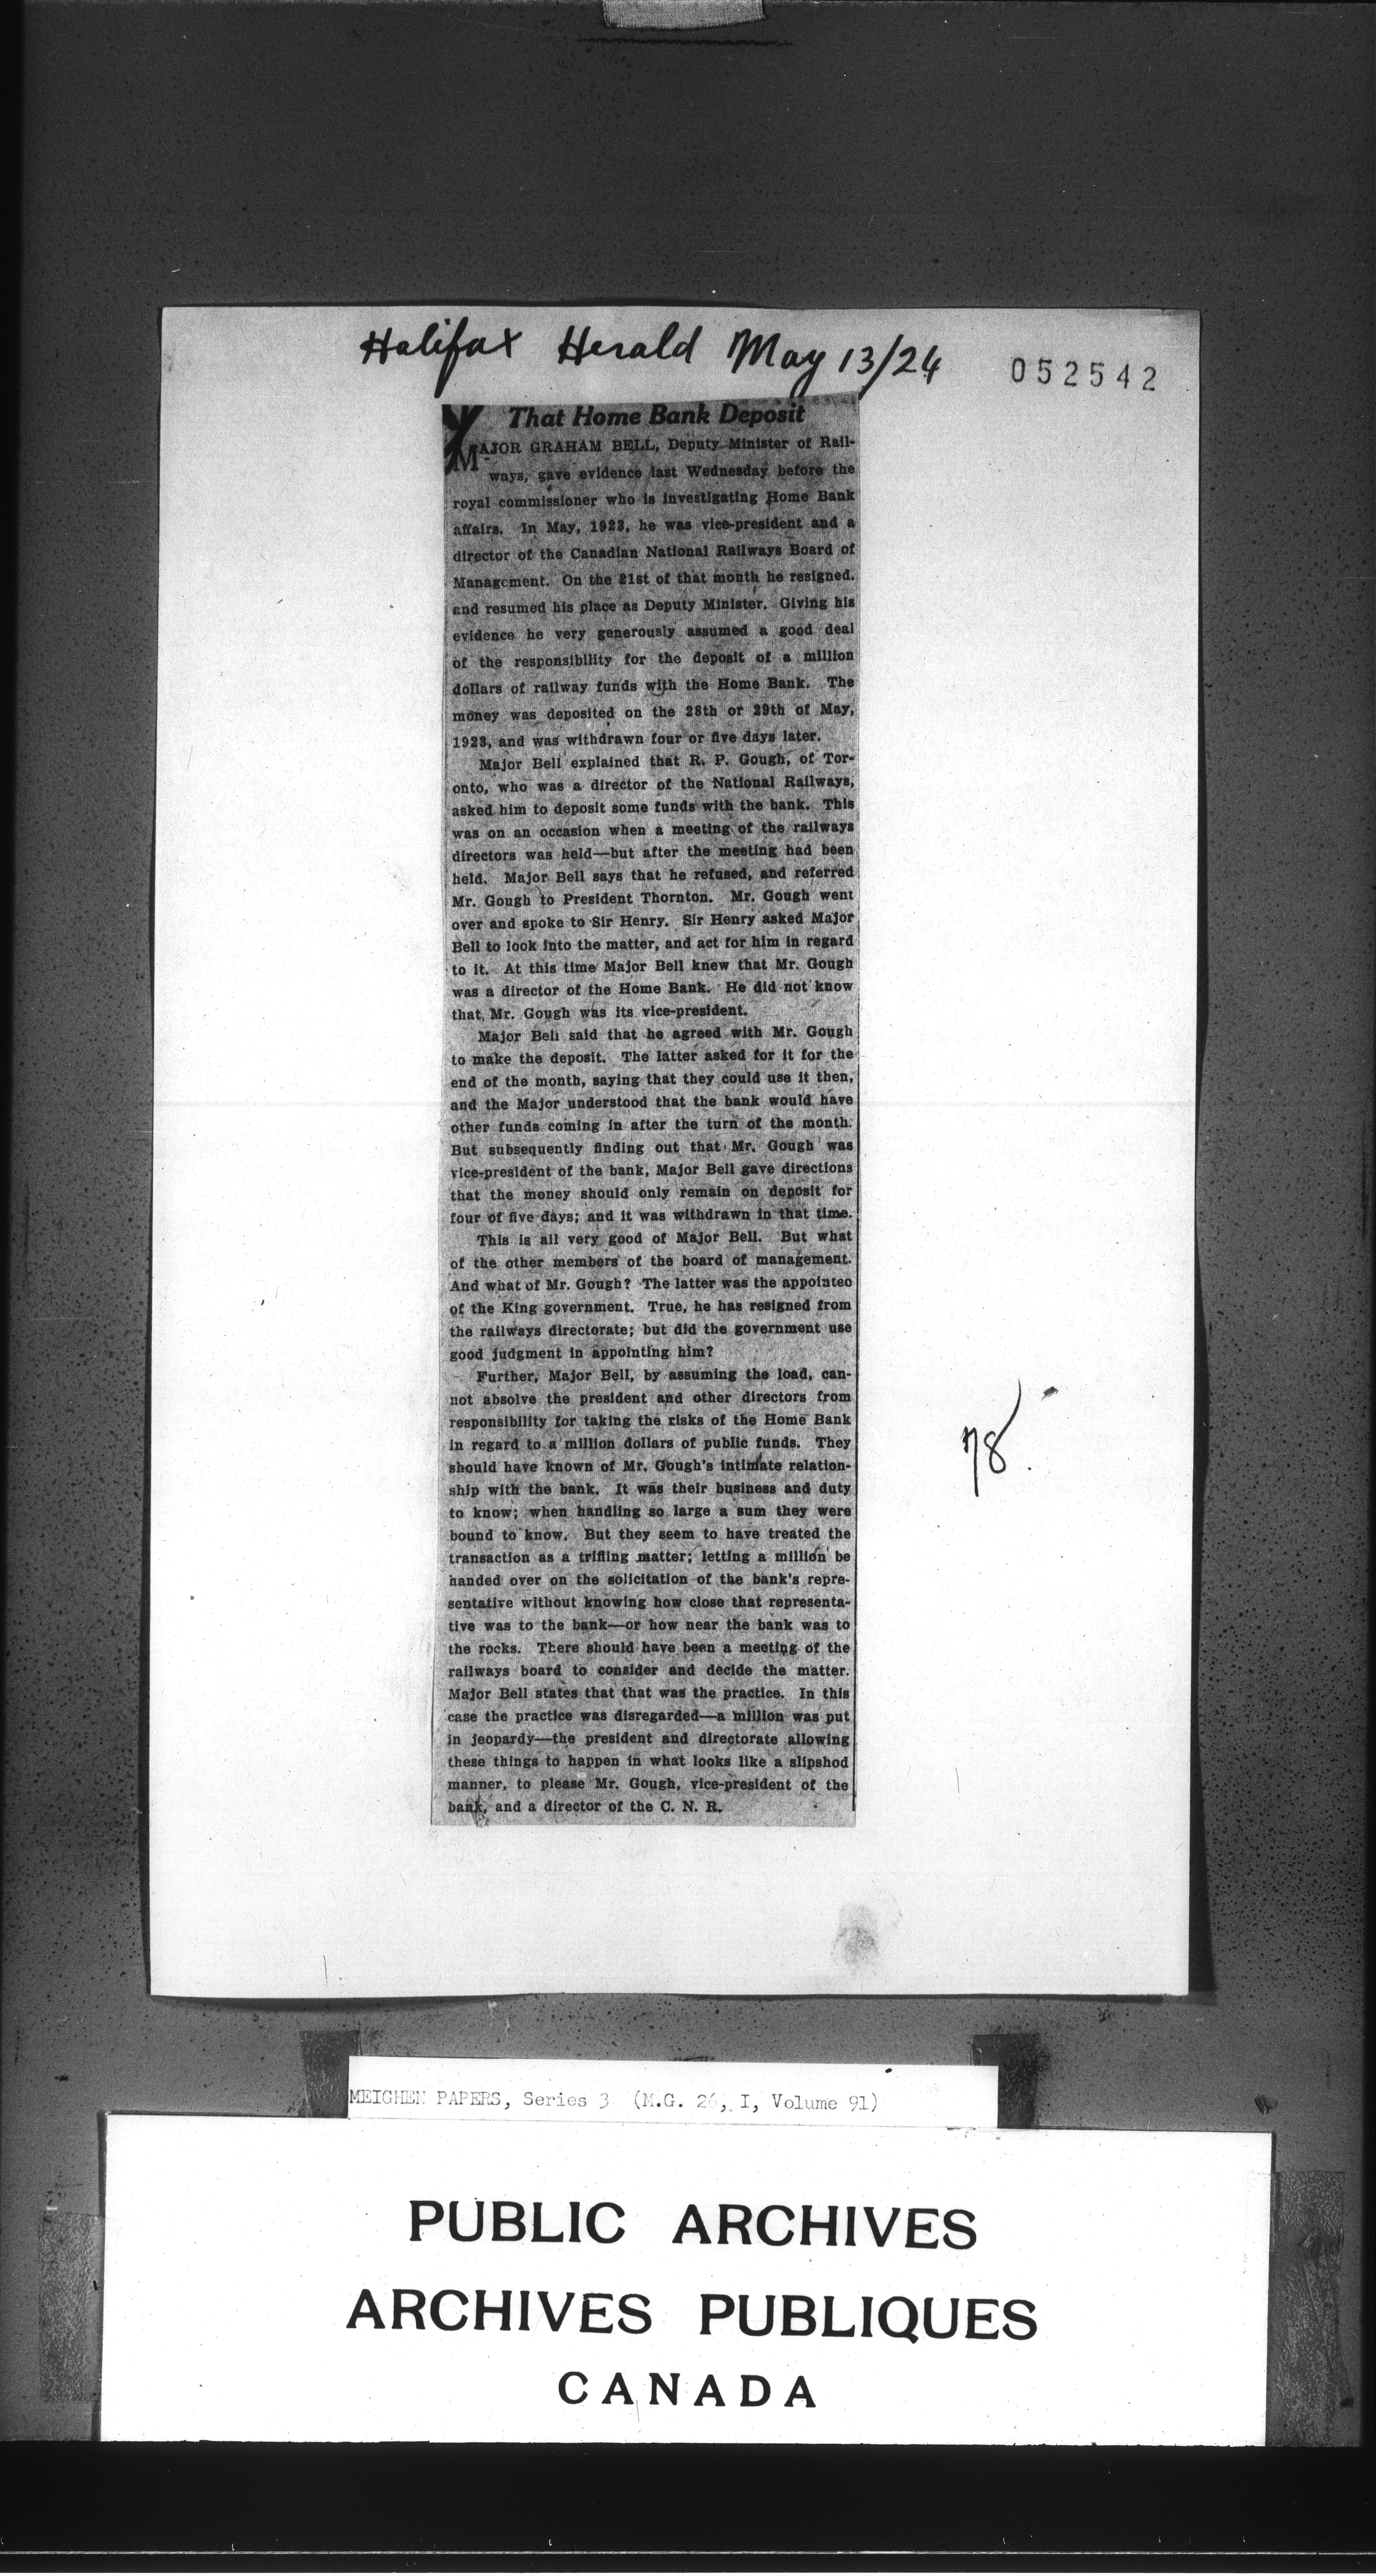 Halifax Herald May 13/24
052542
That Home Bank Deposit
MAJOR GRAHAM BELL, Deputy Minister of Rail-
ways, gave evidence last Wednesday before the
royal commissioner who is investigating Home Bank
affairs. In May, 1923, he was vice-president and a
director of the Canadian National Railways Board of
Management. On the 21st of that month he resigned,
and resumed his place as Deputy Minister. Giving his
evidence he very generously assumed a good deal
of the responsibility for the deposit of a million
dollars of railway funds with the Home Bank. The
money was deposited on the 28th or 29th of May,
1923, and was withdrawn four or five days later.
Major Bell explained that R. P. Gough, of Tor-
onto, who was a director of the National Railways,
asked him to deposit some funds with the bank. This
was on an occasion when a meeting of the railways
directors was held—but after the meeting had been
held. Major Bell says that he refused, and referred
Mr. Gough to President Thornton. Mr. Gough went
over and spoke to Sir Henry. Sir Henry asked Major
Bell to look into the matter, and act for him in regard
to it. At this time Major Bell knew that Mr. Gough
was a director of the Home Bank. He did not know
that Mr. Gough was its vice-president.
Major Bell said that he agreed with Mr. Gough
to make the deposit. The latter asked for it for the
end of the month, saying that they could use it then,
and the Major understood that the bank would have
other funds coming in after the turn of the month.
But subsequently finding out that Mr. Gough was
vice-president of the bank, Major Bell gave directions
that the money should only remain on deposit for
four of five days; and it was withdrawn in that time.
This is all very good of Major Bell. But what
of the other members of the board of management.
And what of Mr. Gough? The latter was the appointeo
of the King government. True, he has resigned from
the railways directorate; but did the government use
good judgment in appointing him?
Further, Major Bell, by assuming the load, can-
not absolve the president and other directors from
responsibility for taking the risks of the Home Bank
in regard to a million dollars of public funds. They
should have known of Mr. Gough's intimate relation-
ship with the bank. It was their business and duty
to know; when handling so large a sum they were
bound to know. But they seem to have treated the
transaction as a trifling matter; letting a million be
handed over on the solicitation of the bank's repre-
sentative without knowing how close that representa-
tive was to the bank—or how near the bank was to
the rocks. There should have been a meeting of the
railways board to consider and decide the matter.
Major Bell states that that was the practice. In this
case the practice was disregarded—a million was put
in jeopardy—the president and directorate allowing
these things to happen in what looks like a slipshod
manner, to please Mr. Gough, vice-president of the
bank, and a director of the C. N. R.
78
MEIGHEN PAPERS, Series 3 (M.G. 26, I, Volume 91)
PUBLIC ARCHIVES
ARCHIVES PUBLIQUES
CANADA